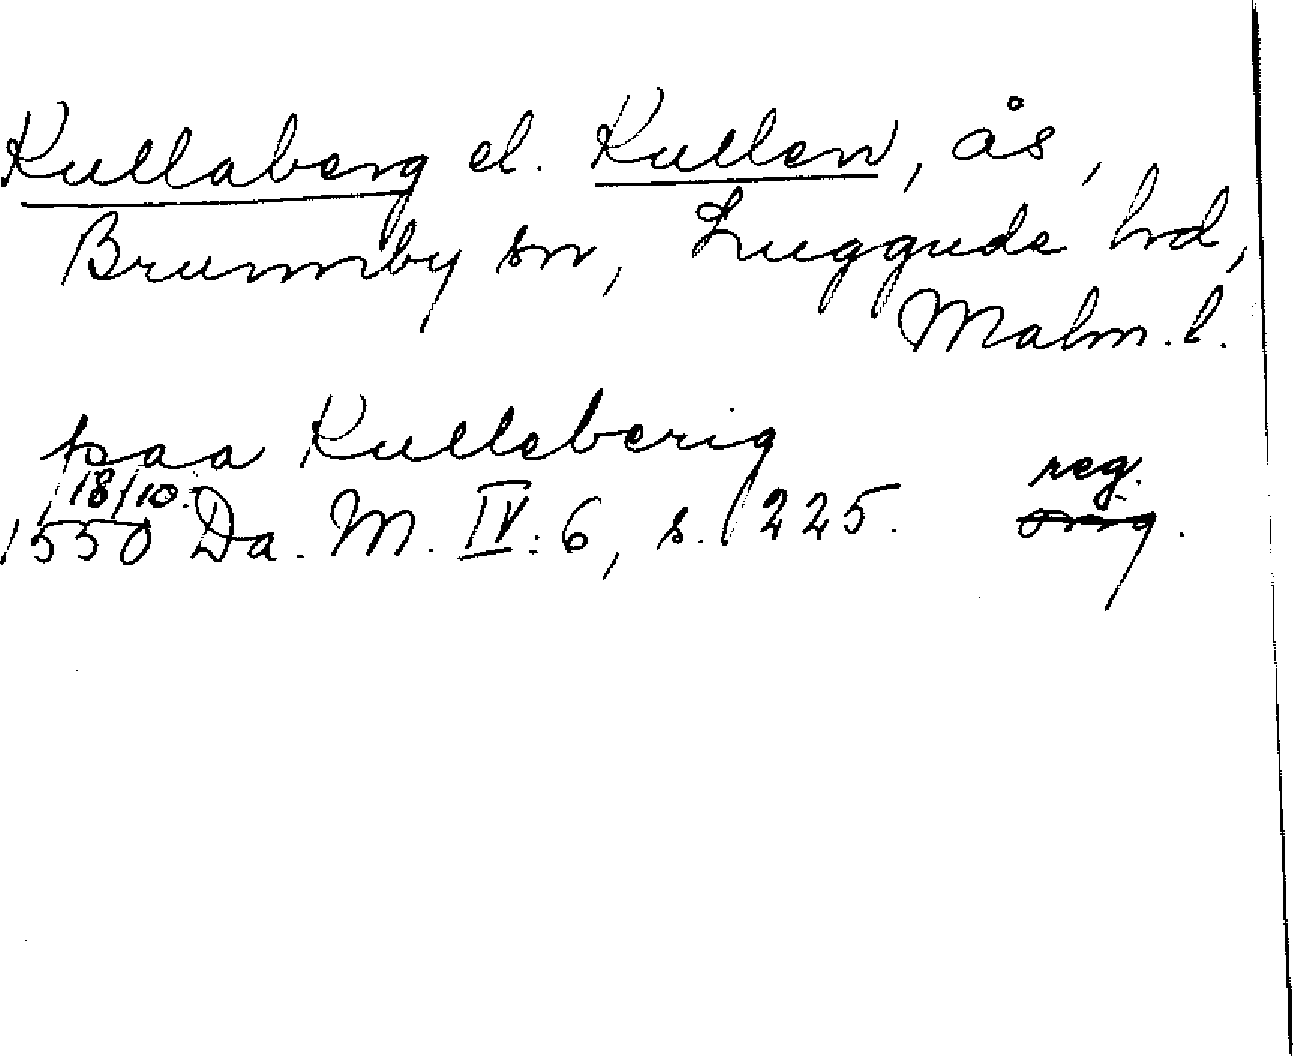 Kullaberg el. Kullen, ås,
Brunnby sn, Luggude hd,
Malm. l.
paa Kulleberig
18/10. reg.
1550 Da. M. IV: 6, s. 225. orig.